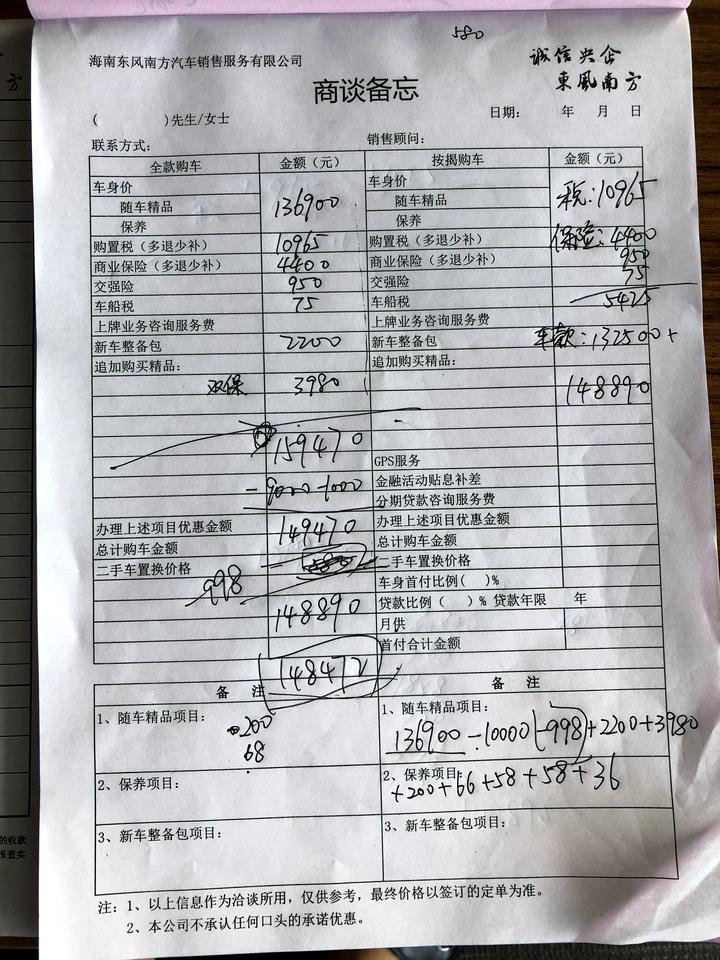 580
海南东风南方汽车销售服务有限公司
诚信央企
東風南方
商谈备忘
( )先生/女士 日期: 年 月 日
联系方式: 销售顾问:
全款购车 金额（元） 按揭购车 金额（元）
车身价 136900 车身价 税:10965
随车精品 随车精品
保养 保养
购置税（多退少补） 10965 购置税（多退少补） 保险:4400
商业保险（多退少补） 4400 商业保险（多退少补） 950
交强险 950 交强险 75
车船税 75 车船税 5425
上牌业务咨询服务费 上牌业务咨询服务费
新车整备包 2200 新车整备包 车款:132500+
追加购买精品: 追加购买精品:
双保 3980 148890
159470
GPS服务
-9000-1000 金融活动贴息补差
分期贷款咨询服务费
办理上述项目优惠金额 149470 办理上述项目优惠金额
总计购车金额 总计购车金额
二手车置换价格 -580 二手车置换价格
-998 车身首付比例( )%
148890 贷款比例（ ）% 贷款年限 年
月供
首付合计金额
148472
备 注 备 注
1、随车精品项目: 1、随车精品项目:
200 136900-10000(-998)+2200+3980
68
2、保养项目: 2、保养项目:
+200+66+58+58+36
3、新车整备包项目: 3、新车整备包项目:
注: 1、以上信息作为洽谈所用，仅供参考，最终价格以签订的定单为准。
2、本公司不承认任何口头的承诺优惠。